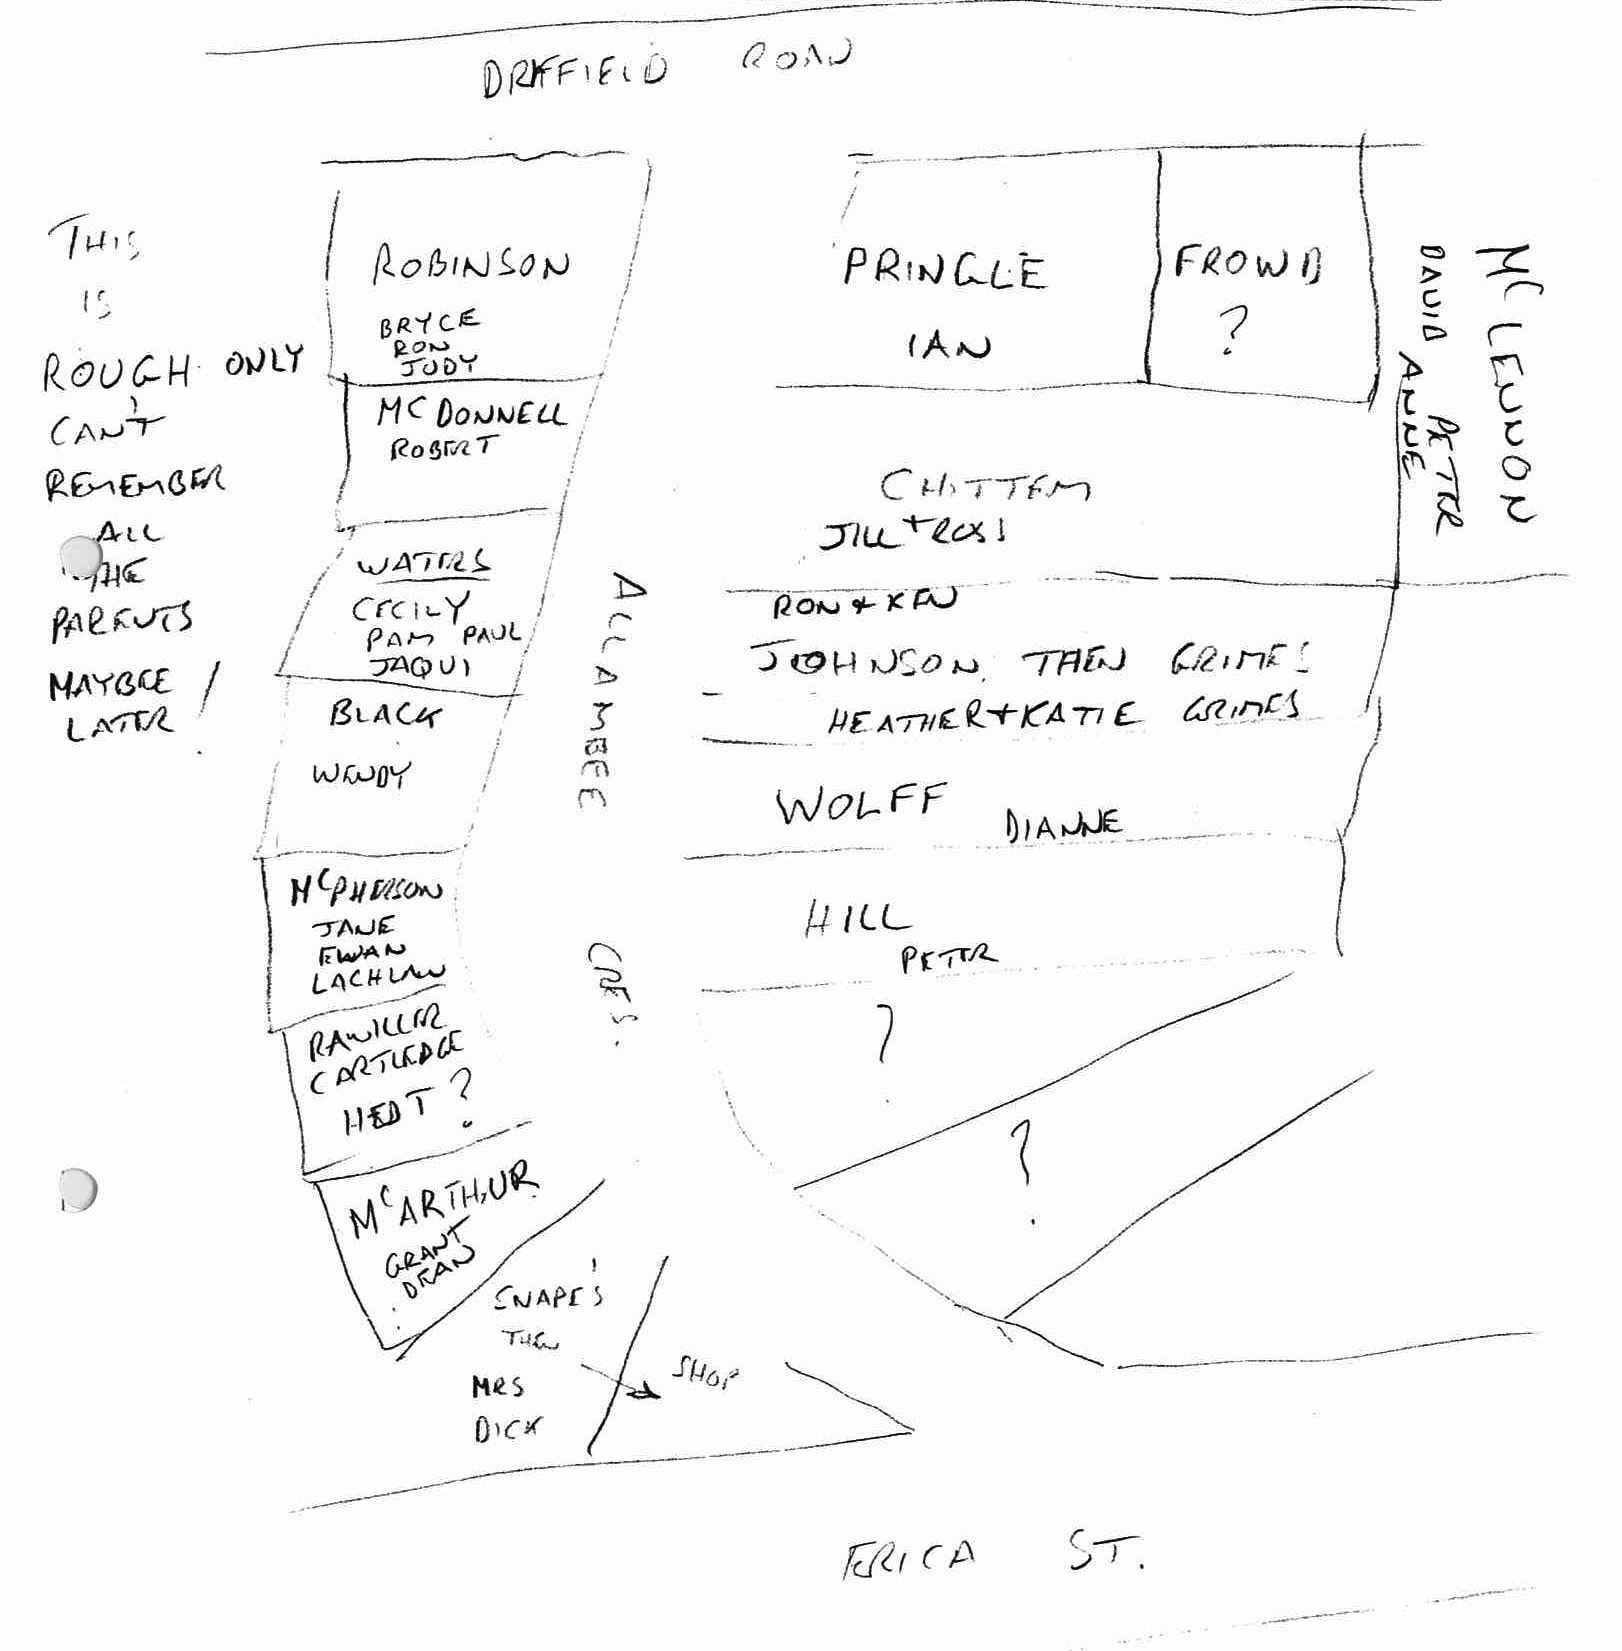 DRIFFIELD ROAD
THIS
IS
ROUGH ONLY
CAN'T
REMEMBER
ALL
THE
PARENTS
MAYBEE
LATER !
ROBINSON
BRYCE
RON
JUDY
MC DONNELL
ROBERT
WATERS
CECILY
PAM PAUL
JAQUI
BLACK
WENDY
MCPHERSON
JANE
EWAN
LACHLAN
RAWILLER
CARTLEDGE
HEDT ?
MCARTHUR
GRANT
DEAN
SNAPE'S
THEN
MRS
DICK
SHOP
ALLAMBEE CRES.
PRINGLE
IAN
FROWD
?
MC LENNON
DAVID PETER
ANNE
CHITTEM
JILL + ROSS
RON & KEN
JOHNSON. THEN GRIMES
HEATHER + KATIE GRIMES
WOLFF
DIANNE
HILL
PETER
?
?
ERICA ST.